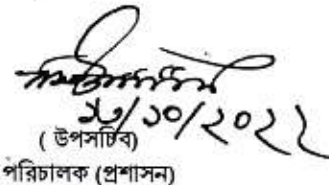 ১৩/১০/২০২২
( উপসচিব)
পরিচালক (প্রশাসন)